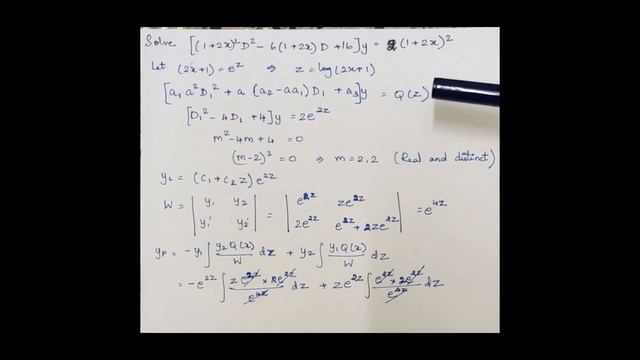 Solve [(1+2x)²D² - 6(1+2x)D + 16]y = 2(1+2x)²
Let (2x+1) = e^z ⇒ z = log(2x+1)
[a₁a²D₁² + a(a₂-aa₁)D₁ + a₃]y = Q(z)
[D₁² - 4D₁ + 4]y = 2e^{2z}
m² - 4m + 4 = 0
(m-2)² = 0 ⇒ m = 2,2 (Real and distinct)
y_c = (c₁ + c₂z)e^{2z}
W = | y₁ y₂ ; y₁' y₂' | = | e^{2z} ze^{2z} ; 2e^{2z} e^{2z}+2ze^{2z} | = e^{4z}
y_p = -y₁∫ y₂Q(x)/W dz + y₂∫ y₁Q(x)/W dz
= -e^{2z}∫ z e^{2z} × 2e^{2z}/e^{4z} dz + ze^{2z}∫ e^{2z} × 2e^{2z}/e^{4z} dz